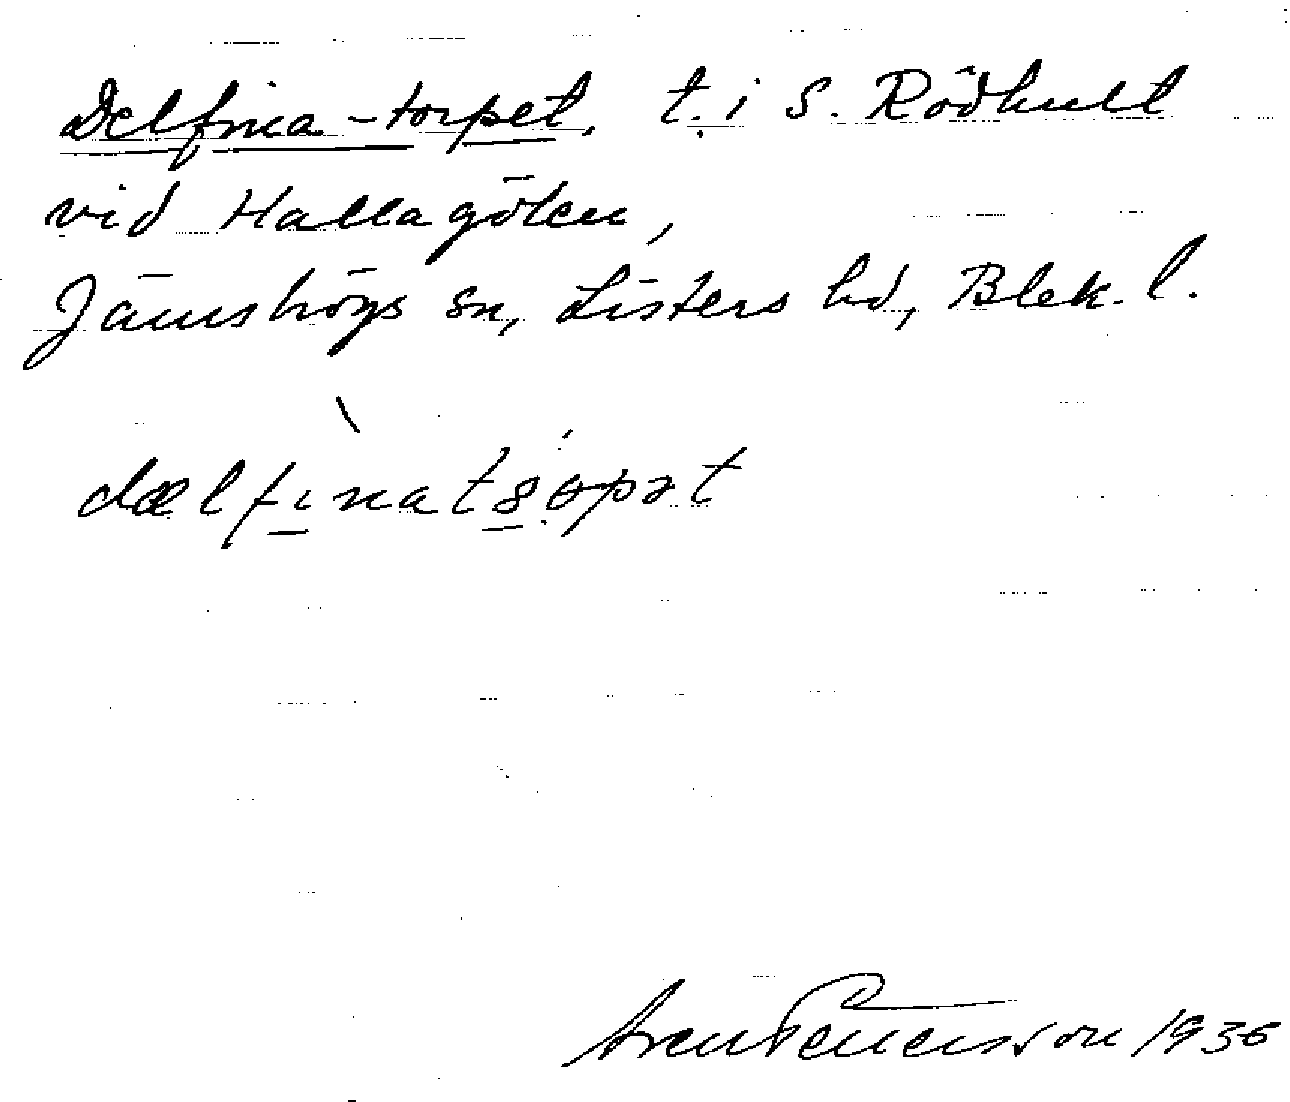 Delfina-torpet, t. i S. Rödhult
vid Hallagölen,
Jämshögs sn, Listers hd, Blek. l.
dælfinat
1936